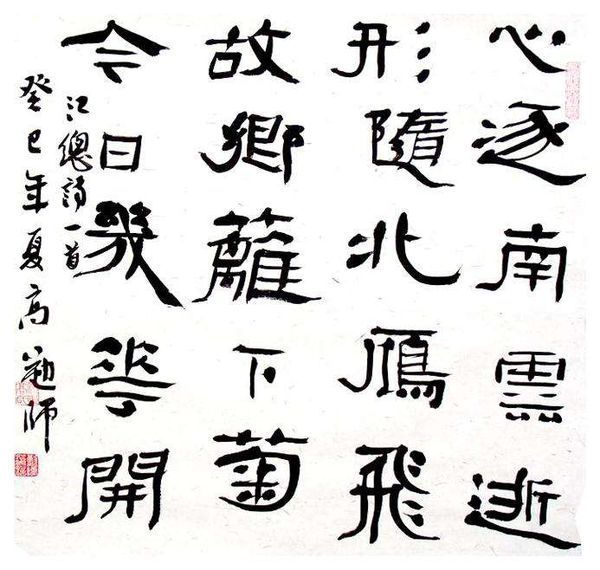 心逐南雲逝
形隨北鴈飛
故鄉籬下菊
今日幾花開
江總詩一首
癸巳年夏高師